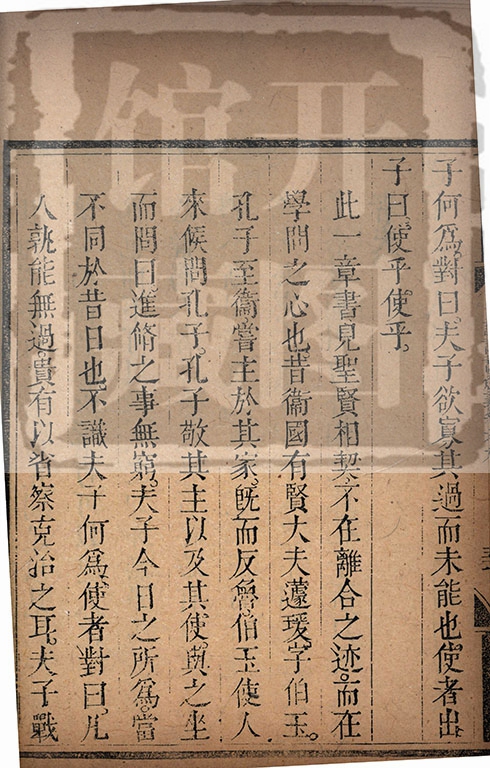 子何爲對曰夫子欲寡其過而未能也使者出
子曰使乎使乎
此一章書見聖賢相契不在離合之迹而在
學問之心也昔衞國有賢大夫蘧瑗字伯玉
孔子至衞嘗主於其家旣而反魯伯玉使人
來候問孔子孔子敬其主以及其使與之坐
而問曰進脩之事無窮夫子今日之所爲當
不同於昔日也不識夫子何爲使者對曰凡
人孰能無過貴有以省察克治之耳夫子戰
开图
馆藏